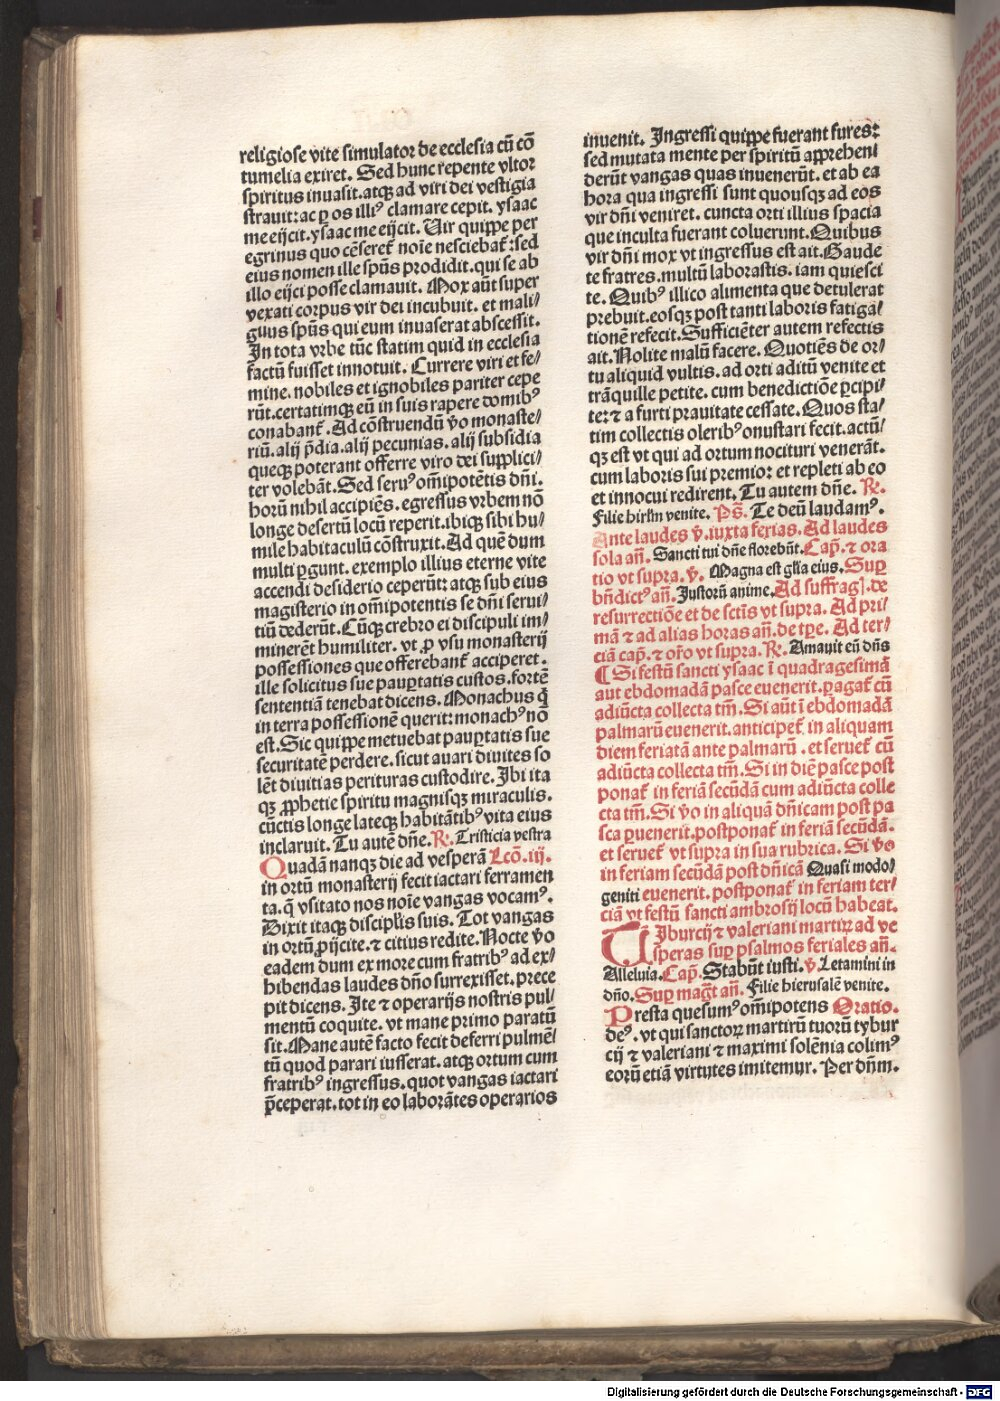 religiose vite simulator de ecclesia cū cō
tumelia exiret. Sed hunc repente vltor
spiritus inuasit. atqꝫ ad viri dei vestigia
strauit: ac ꝑ os illiꝰ clamare cepit. ysaac
me eijcit. ysaac me eijcit. Vir quippe per
egrinus quo cēseret᷑ noīe nesciebat᷑: sed
eius nomen ille spūs prodidit. qui se ab
illo eijci posse clamauit. Mox aūt super
vexati corpus vir dei incubuit. et mali/
gnus spūs qui eum inuaserat abscessit.
In tota vrbe tūc statim quid in ecclesia
factū fuisset innotuit. Currere viri et fe/
mine. nobiles et ignobiles pariter cepe
rūt. certatimqꝫ eū in suis rapere domibꝰ
conabant᷑. Ad cōstruendū v̄o monaste/
riū. alij p̄dia. alij pecunias. alij subsidia
queqꝫ poterant offerre viro dei supplici/
ter volebāt. Sed seruꝰ om̄ipotētis dn̄i.
horū nihil accipiēs. egressus vrbem nō
longe desertū locū reperit. ibiqꝫ sibi hu/
mile habitaculū cōstruxit. Ad quē dum
multi ꝑgunt. exemplo illius eterne vite
accendi desiderio ceperūt: atqꝫ sub eius
magisterio in om̄ipotentis se dn̄i serui/
tiū dederūt. Cūqꝫ crebro ei discipuli im/
minerēt humiliter. vt ꝓ vsu monasterij
possessiones que offerebant᷑ acciperet.
ille solicitus sue pauꝑtatis custos. fortē
sententiā tenebat dicens. Monachus q̄
in terra possessionē querit: monachꝰ nō
est. Sic quippe metuebat pauꝑtatis sue
securitatē perdere. sicut auari diuites so
lēt diuitias perituras custodire. Ibi ita
qꝫ ꝓphetie spiritu magnisqꝫ miraculis.
cūctis longe lateqꝫ habitātibꝰ vita eius
inclaruit. Tu autē dn̄e. R̷. Tristicia vestra
Quadā nanqꝫ die ad vesperā Lcō. iij.
in ortū monasterij fecit iactari ferramen
ta. q̄ vsitato nos noīe vangas vocamꝰ.
Dixit itaqꝫ disciplis suis. Tot vangas
in ortū ꝓijcite. ⁊ citius redite. Nocte v̄o
eadem dum ex more cum fratribꝰ ad ex/
hibendas laudes dn̄o surrexisset. prece
pit dicens. Ite ⁊ operarijs nostris pul/
mentū coquite. vt mane primo paratū
sit. Mane autē facto fecit deferri pulmē/
tū quod parari iusserat. atqꝫ ortum cum
fratribꝰ ingressus. quot vangas iactari
p̄ceperat. tot in eo laborātes operarios
inuenit. Ingressi quippe fuerant fures:
sed mutata mente per spiritū apprehen/
derūt vangas quas inuenerūt. et ab ea
hora qua ingressi sunt quousqꝫ ad eos
vir dn̄i veniret. cuncta orti illius spacia
que inculta fuerant coluerunt. Quibus
vir dn̄i mox vt ingressus est ait. Gaude
te fratres. multū laborastis. iam quiesci
te. Quibꝰ illico alimenta que detulerat
prebuit. eosqꝫ post tanti laboris fatiga/
tionē refecit. Sufficiēter autem refectis
ait. Nolite malū facere. Quotiēs de or/
tu aliquid vultis. ad orti aditū venite et
trāquille petite. cum benedictiōe ꝑcipi/
te: ⁊ a furti prauitate cessate. Quos sta/
tim collectis oleribꝰ onustari fecit. actū/
qꝫ est vt qui ad ortum nocituri venerāt.
cum laboris sui premio: et repleti ab eo
et innocui redirent. Tu autem dn̄e. R̷.
Filie hirłm venite. Ps̄. Te deū laudamꝰ.
Ante laudes v̄. iuxta ferias. Ad laudes
sola an̄. Sancti tui dn̄e florebūt. Cap̄. ⁊ ora
tio vt supra. v̄. Magna est głia eius. Suꝑ
bn̄dictꝰ an̄. Justorū anime. Ad suffragꝭ. de
resurrectiōe et de sctīs vt supra. Ad pri/
mā ⁊ ad alias horas an̄. de tp̄e. Ad ter/
ciā cap̄. ⁊ or̄o vt supra. R̷. Amauit eū dn̄s
¶ Si festū sancti ysaac ī quadragesimā
aut ebdomadā pasce euenerit. ꝑagat᷑ cū
adiūcta collecta tm̄. Si aūt ī ebdomadā
palmarū euenerit. anticipet᷑ in aliquam
diem feriatā ante palmarū. et seruet᷑ cū
adiūcta collecta tm̄. Si in diē pasce post
ponat᷑ in feriā secūdā cum adiūcta colle
cta tm̄. Si v̄o in aliquā dn̄icam post pa
sca ꝑuenerit. postponat᷑ in feriā secūdā.
et seruet᷑ vt supra in sua rubrica. Si v̄o
in feriam secūdā post dn̄icā Quasi modo/
geniti euenerit. postponat᷑ in feriam ter/
ciā vt festū sancti ambrosij locū habeat.
Tiburcij ⁊ valeriani martiꝝ ad ve
speras suꝑ psalmos feriales an̄.
Alleluia. Cap̄. Stabūt iusti. v̄. Letamini in
dn̄o. Suꝑ mag̅t᷑ an̄. Filie hierusalē venite.
Presta quesumꝰ om̄ipotens Oratio.
deꝰ. vt qui sanctoꝝ martirū tuorū tybur
cij ⁊ valeriani ⁊ maximi solēnia colimꝰ
eorū etiā virtutes imitemur. Per dn̄m.
Digitalisierung gefördert durch die Deutsche Forschungsgemeinschaft - DFG